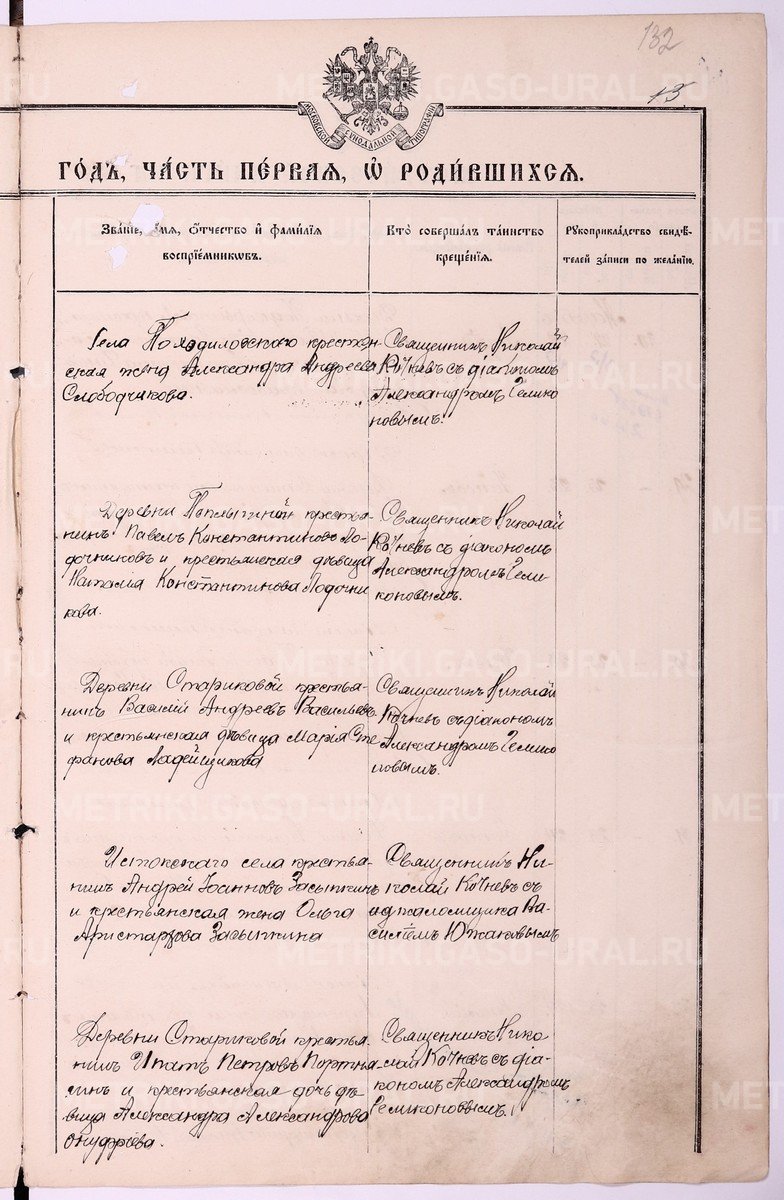 132
13.
МОСКОВСКОЙ СѴНОДАЛЬНОЙ ТИПОГРАФІИ
ГО́ДЪ, ЧА́СТЬ ПЕ́РВАЯ, Ѡ҆ РОДИ́ВШИХСЯ.
Зва́ніе, и҆́мя, ѻ҆́тчество и҆ фами́лїя
воспрїе́мникѡвъ.
Кто̀ соверша́лъ та́инство
креще́нїя.
Рꙋкоприкла́дство свидѣ́-
телей за́писи по жела́нїю.
Села крестьян
ская жена Александра Андреева
Слободчикова.
Священникъ Николай
Кочневъ съ діакономъ
Александромъ Гемико
новымъ.
Деревни крестья-
нинъ Павелъ Константиновъ Ло-
дочниковъ и крестьянская дѣвица
Наталія Константинова Лодочни
кова.
Священникъ Николай
Кочневъ съ діакономъ
Александромъ Геми
коновымъ.
Деревни Стариковой крестья-
нинъ Василій Андреевъ Васильевъ
и крестьянская дѣвица Марія Сте
фанова Ладейщикова
Священникъ Николай
Кочневъ съ діакономъ
Александромъ Гемико
новымъ.
Истокскаго села крестья-
нинъ Андрей Іоанновъ Засыпкинъ
и крестьянская жена Ольга
Аристархова Засыпкина
Священникъ Ни-
колай Кочневъ съ
и д псаломщика Ва-
силіемъ Южаковымъ
Деревни Стариковой крестья-
нинъ Ипатъ Петровъ Портня
гинъ и крестьянская дочь дѣ-
вица Александра Александрова
Онуфріева.
Священникъ Нико
лай Кочневъ съ діа-
кономъ Александромъ
Гемиконовымъ.
METRIKI.GASO-URAL.RU